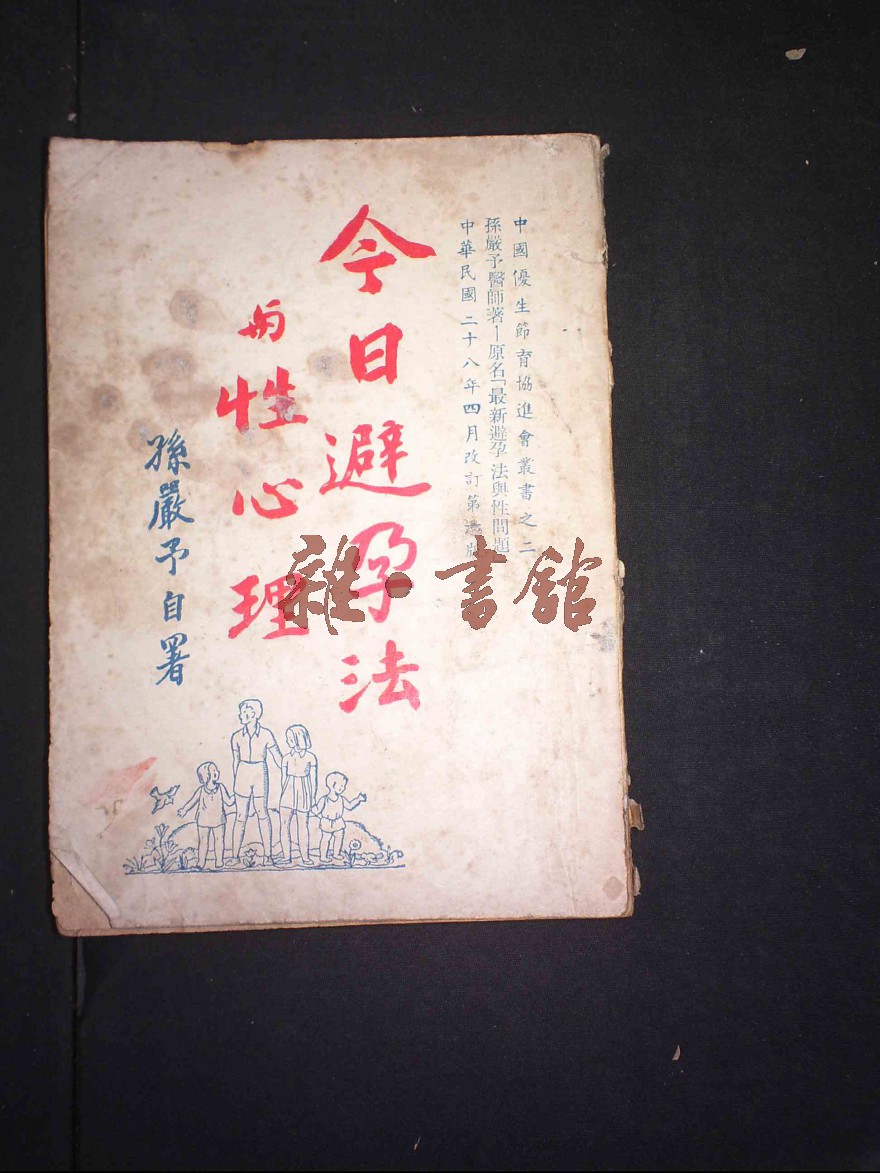 中國優生節育協進會叢書之二
孫嚴予醫師著—原名「最新避孕法與性問題
中華民國二十八年四月改訂第 版
今日避孕法
与性心理
孫嚴予自署
雜·書館